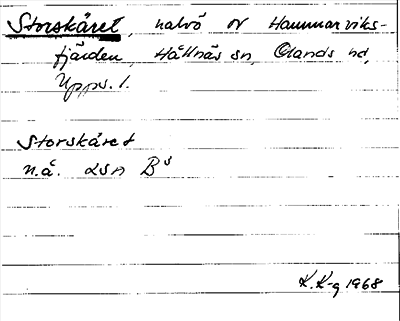 Storskäret, halvö NV Hammarviks-
fjärden, Hållnäs sn, Olands hd,
Upps. l.
Storskäret
n.å. LSA B⁵
K. K-g 1968